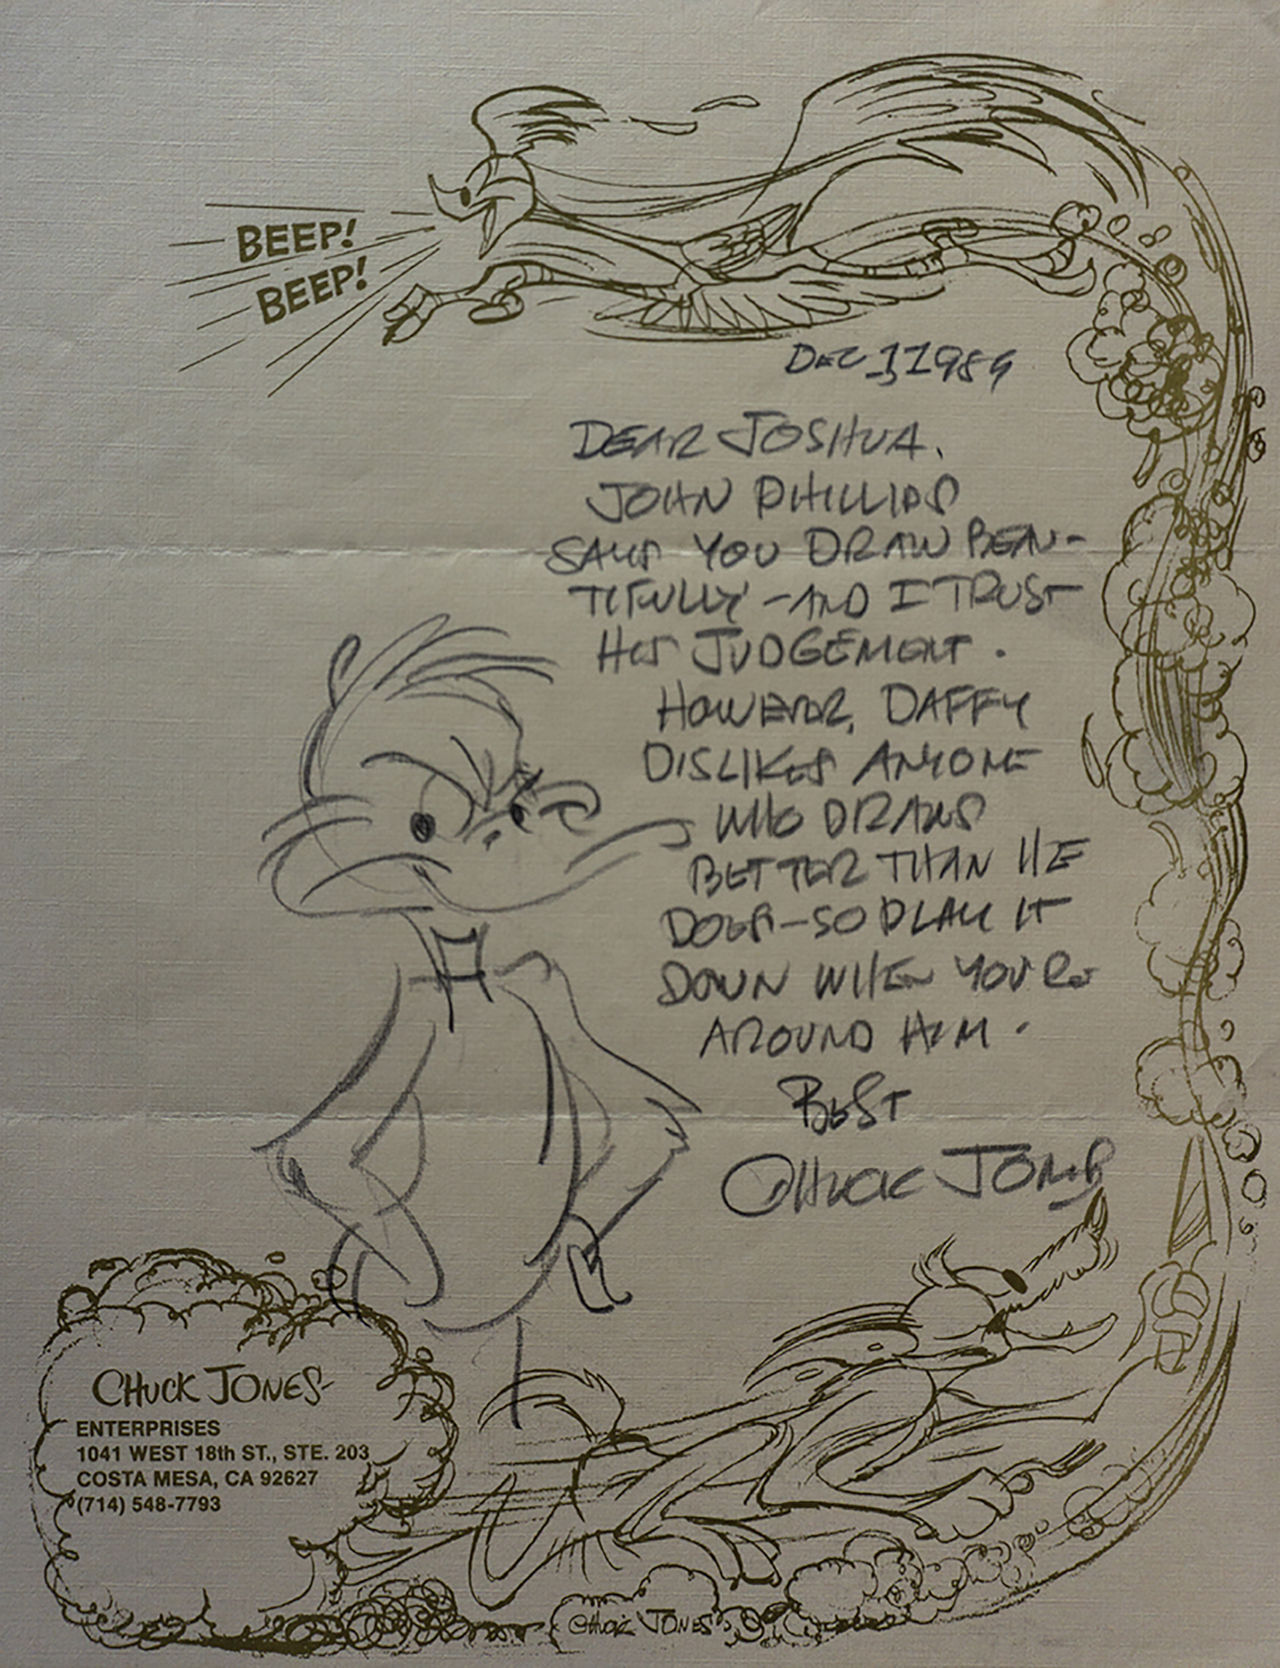 BEEP!
BEEP!
DEC 1, 1989
DEAR JOSHUA.
JOHN PHILLIPS
SAYS YOU DRAW BEAU-
TIFULLY - AND I TRUST
HIS JUDGEMENT.
HOWEVER, DAFFY
DISLIKES ANYONE
WHO DRAWS
BETTER THAN HE
DOES - SO PLAY IT
DOWN WHEN YOU'RE
AROUND HIM.
BEST
CHUCK JONES
CHUCK JONES
ENTERPRISES
1041 WEST 18th ST., STE. 203
COSTA MESA, CA 92627
(714) 548-7793
CHUCK JONES